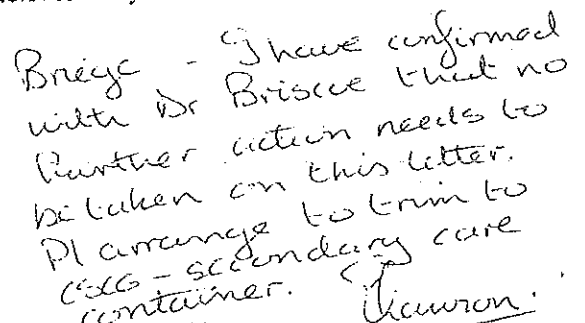 Briege - I have confirmed
with Dr Briscoe that no
further action needs to
be taken on this letter.
Pl arrange to trim to
- secondary care
container.